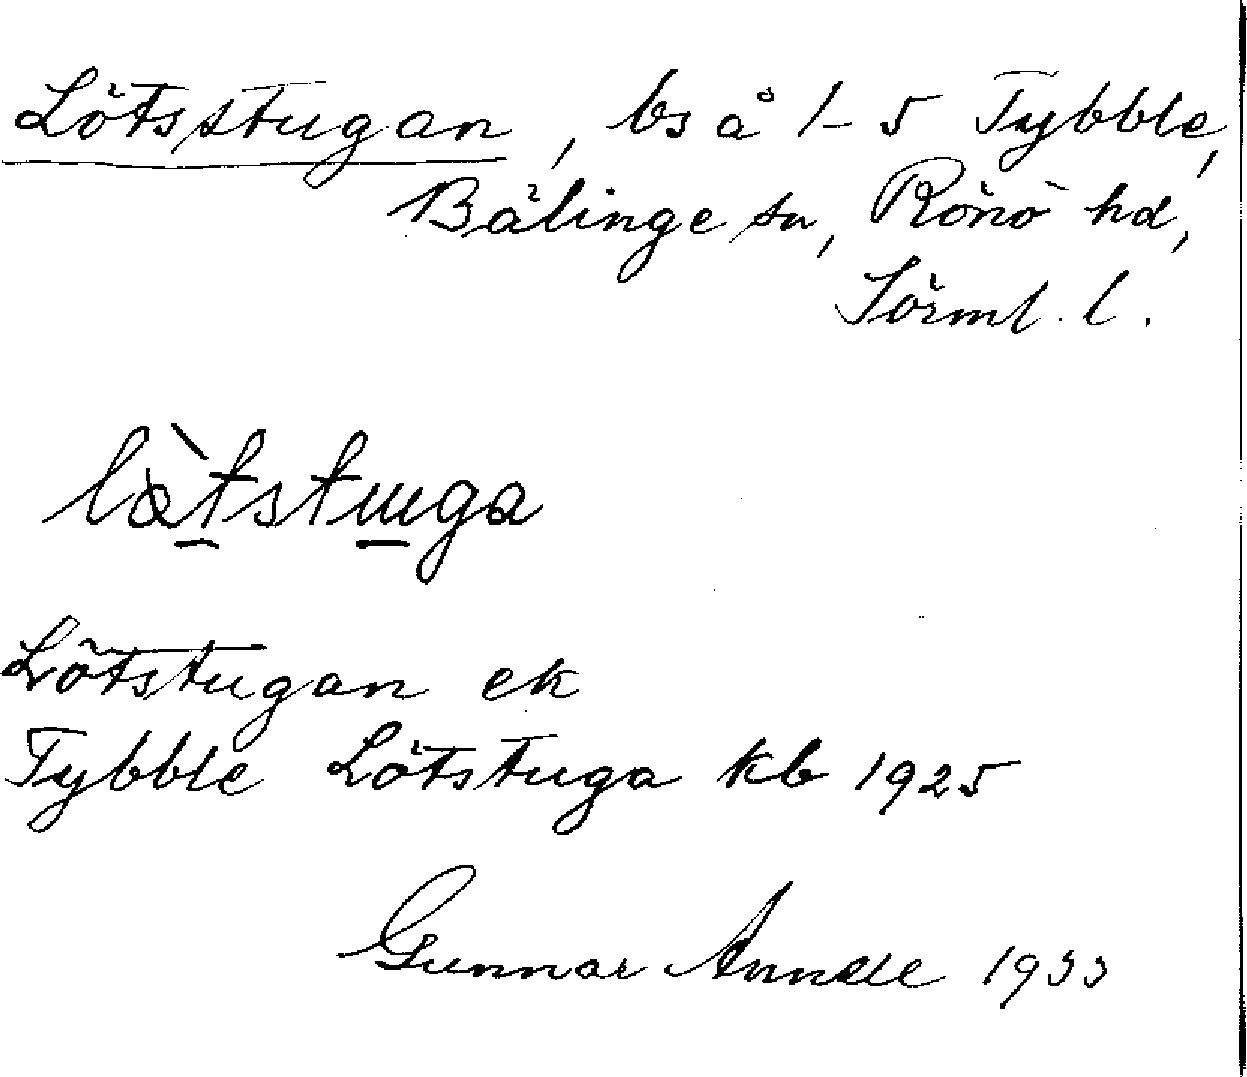 Lötsstugan, bs å 1-5 Tybble,
Bälinge sn, Rönö hd,
Sörml. l.
Lötstugan ek
Tybble Lötstuga kb 1925
Gunnar 1933